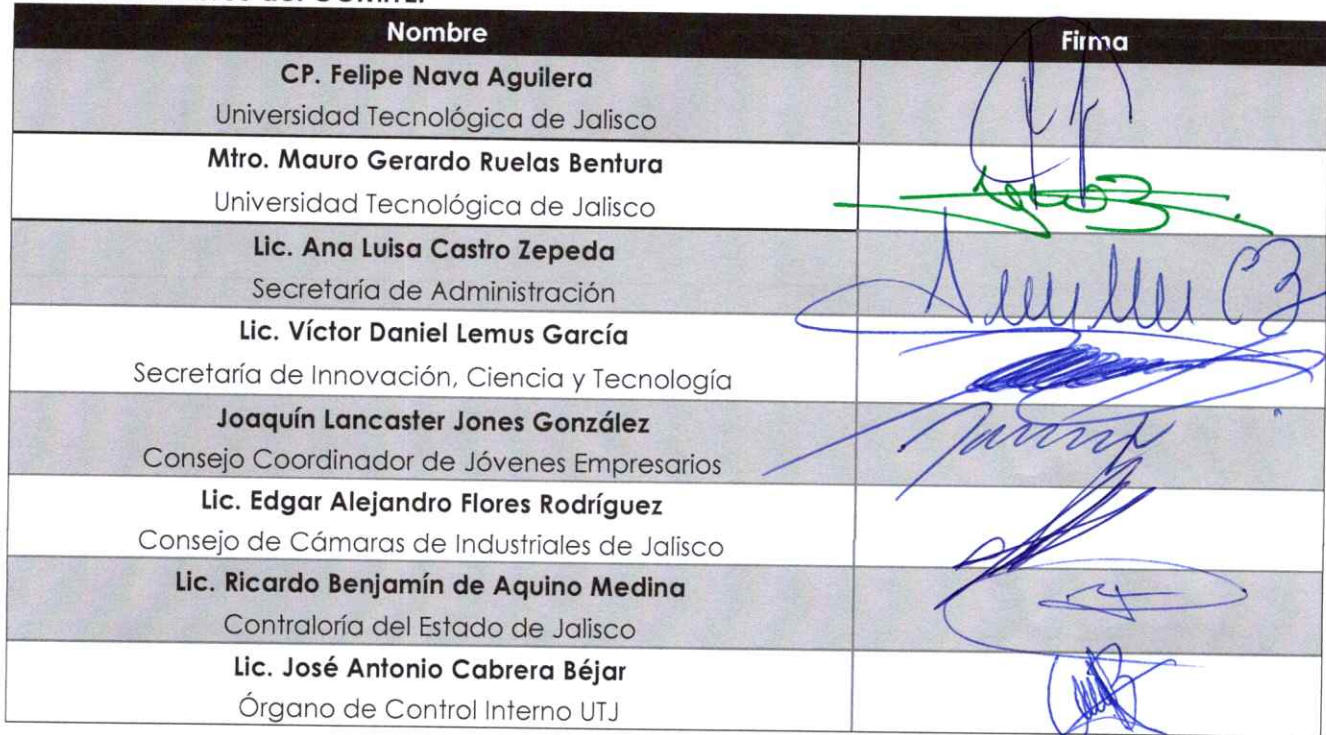 Nombre
Firma
CP. Felipe Nava Aguilera
Universidad Tecnológica de Jalisco
Mtro. Mauro Gerardo Ruelas Bentura
Universidad Tecnológica de Jalisco
Lic. Ana Luisa Castro Zepeda
Secretaría de Administración
Lic. Víctor Daniel Lemus García
Secretaría de Innovación, Ciencia y Tecnología
Joaquín Lancaster Jones González
Consejo Coordinador de Jóvenes Empresarios
Lic. Edgar Alejandro Flores Rodríguez
Consejo de Cámaras de Industriales de Jalisco
Lic. Ricardo Benjamín de Aquino Medina
Contraloría del Estado de Jalisco
Lic. José Antonio Cabrera Béjar
Órgano de Control Interno UTJ